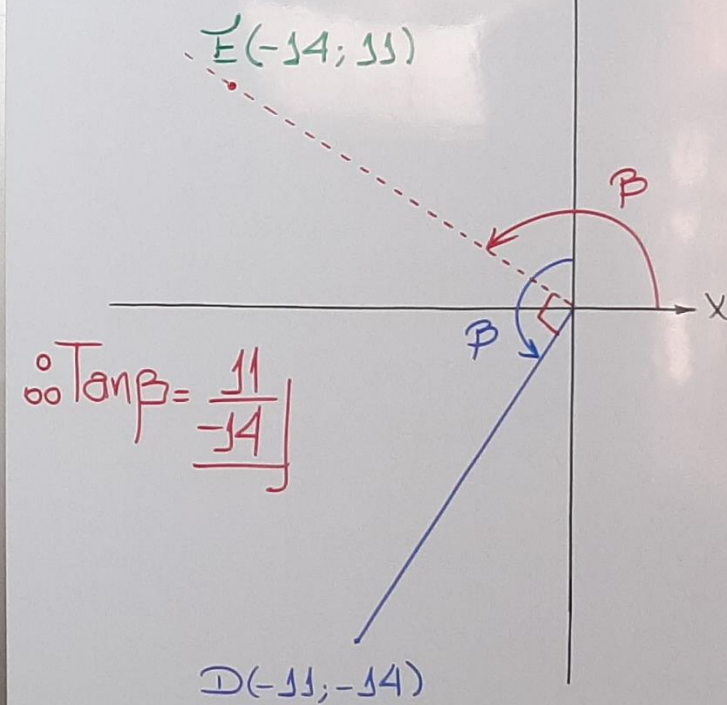 E(-14; 11)
β
X
β
∴ Tanβ = 11/-14
D(-11; -14)